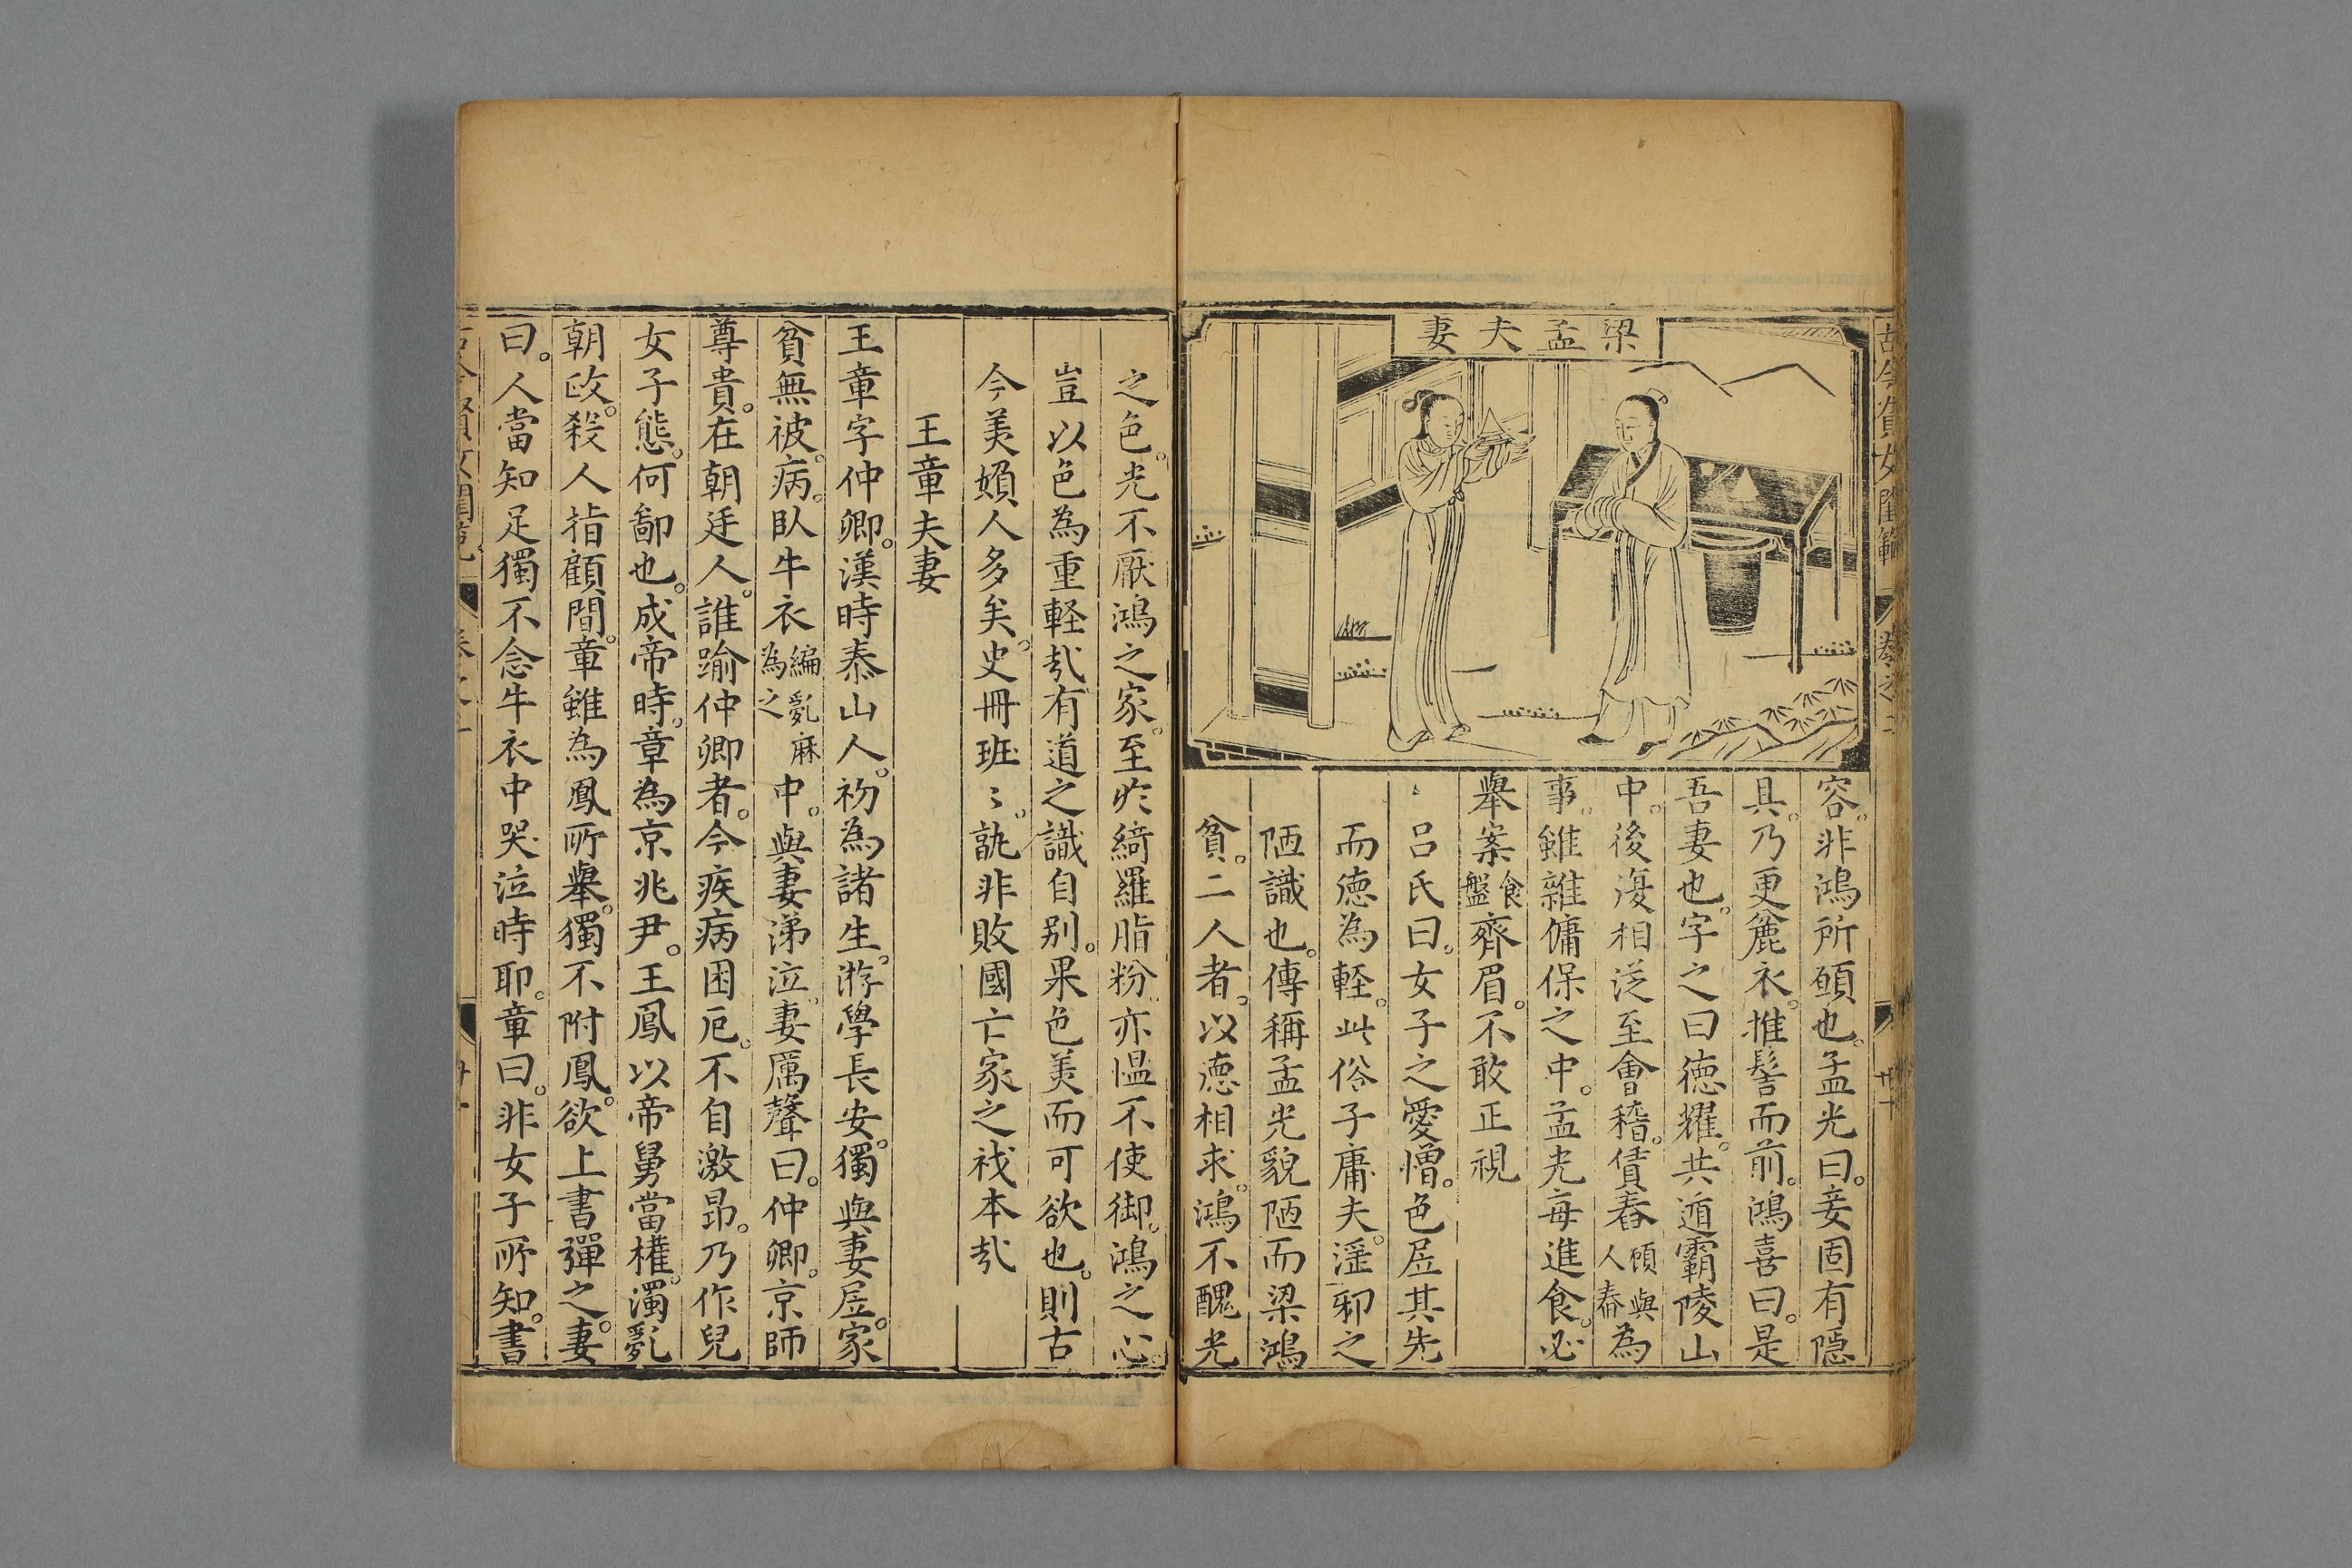 梁孟夫妻
容。非鴻所願也。孟光曰。妾固有隱
具。乃更麄衣。推髻而前。鴻喜曰。是
吾妻也。字之曰徳耀。共遁霸陵山
中。後復相從至會稽。賃舂顧與人舂為
事。雖雜傭保之中。孟光每進食。必
舉案食盤齊眉。不敢正視
呂氏曰。女子之愛憎。色居其先
而徳為軽。此俗子庸夫。滛邪之
陋識也。傳稱孟光貌陋而梁鴻
貧。二人者。以德相求。鴻不醜光
之色。光不厭鴻之家。至於綺羅脂粉。亦愠不使御。鴻之心。
豈以色為重軽㢤有道之識自别。果色美而可欲也。則古
今美嬪人多矣。史冊班〻。孰非敗國亡家之祅本㢤
王章夫妻
王章字仲卿。漢時泰山人。初為諸生。游學長安。獨與妻居。家
貧無被。病。臥牛衣編亂麻為之中。與妻涕泣。妻厲聲曰。仲卿。京師
尊貴。在朝廷人。誰踰仲卿者。今疾病困厄。不自激昂。乃作兒
女子態。何鄙也。成帝時。章為京兆尹。王鳳以帝舅當權。濁亂
朝政。殺人指顧間。章雖為鳳所舉。獨不附鳳。欲上書彈之。妻
曰。人當知足獨不念牛衣中哭泣時耶。章曰。非女子所知。書